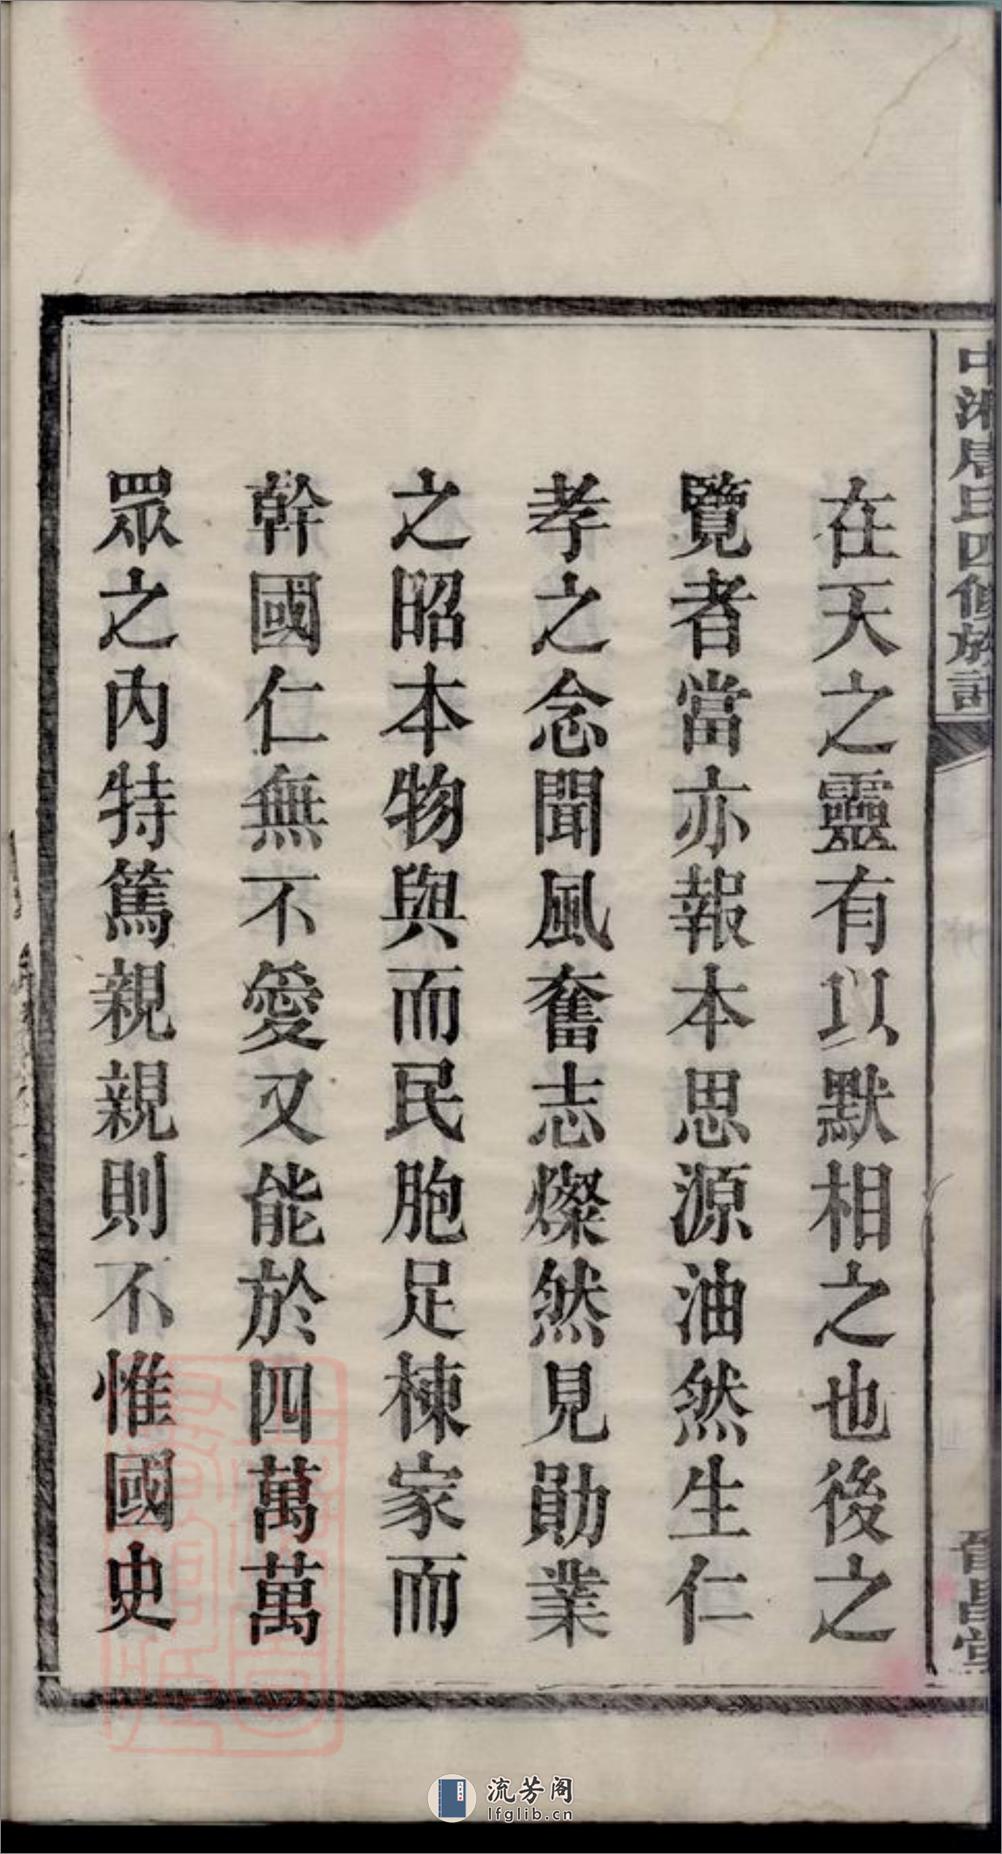 中湘唐氏四修族譜
晉昌堂
在天之靈有以默相之也後之
覽者當亦報本思源油然生仁
孝之念聞風奮志燦然見勛業
之昭本物與而民胞足棟家而
幹國仁無不愛又能於四萬萬
眾之內特篤親親則不惟國史
流芳阁
lfglib.cn